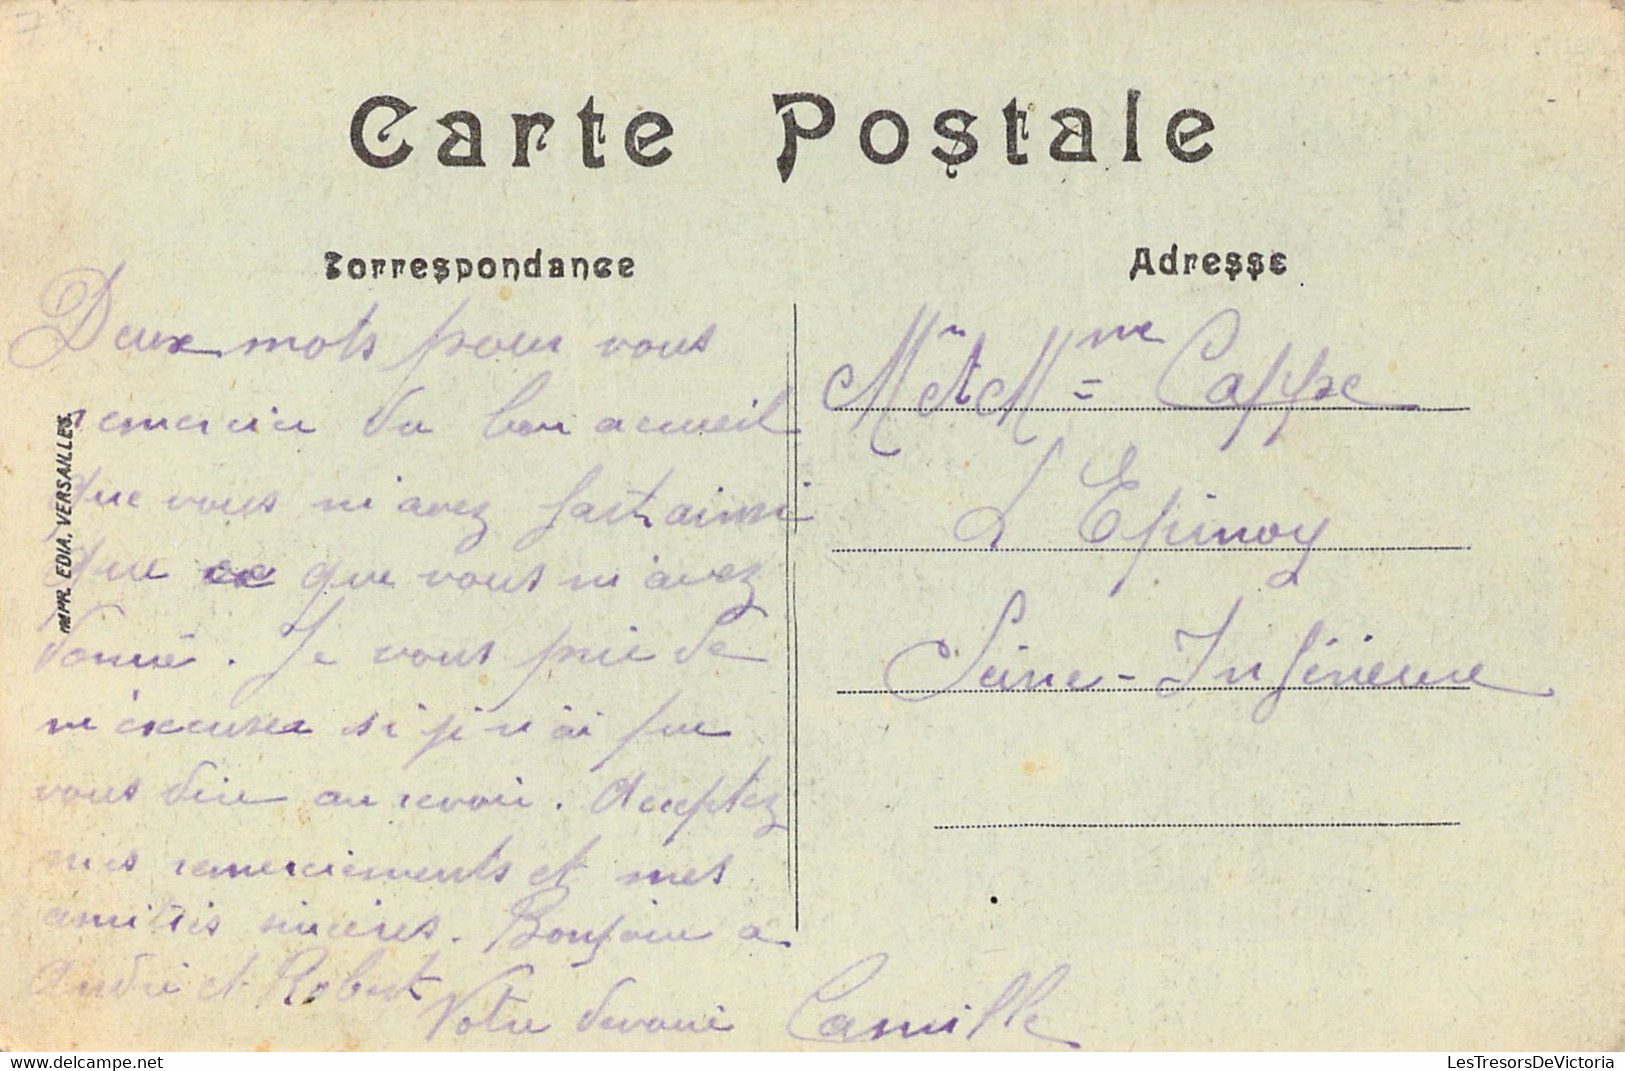 Carte Postale
Correspondance
Deux mots pour vous
remercier du bon accueil
que vous m'avez fait ainsi
que ce que vous m'avez
donné. Je vous prie de
m'excuser si je n'ai pu
vous dire au revoir. Acceptez
mes remerciements et mes
amitiés sincères. Bonjour a
André et Robert
Votre dévoué Camille
IMPR. EDIA. VERSAILLES.
Adresse
Mr et Mme Cappe
L'Epinoy
Seine-Inférieure
LesTresorsDeVictoria